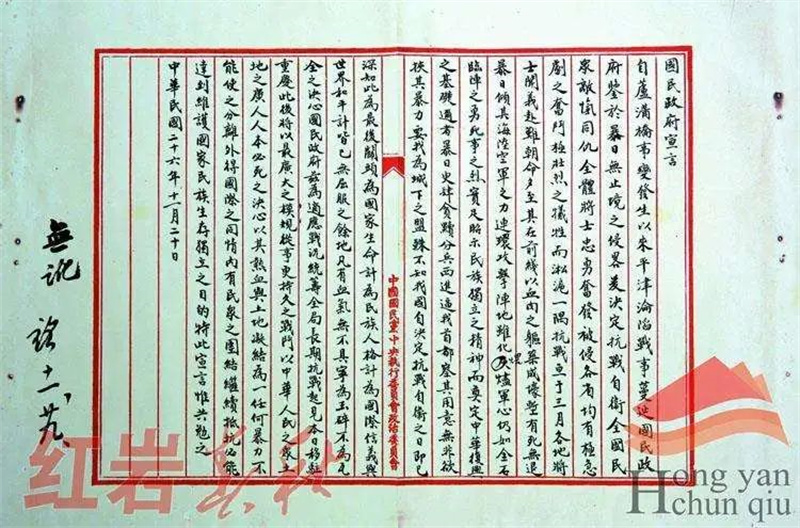 國民政府宣言
自盧溝橋事變發生以來平津淪陷戰事蔓延國民政
府鑒於暴日無止境之侵畧爰決定抗戰自衛全國民
眾敵愾同仇全體將士忠勇奮發被侵各省均有極急
劇之奮鬥極壯烈之犧牲而淞滬一隅抗戰亘于三月各地將
士聞義赴難朝命夕至其在前綫以血肉之軀築成壕塹有死無退
暴日傾其海陸空軍之力連環攻擊陣地雖化煨燼軍心仍如金石
臨陣之勇死事之烈實足昭示民族獨立之精神而奠定中華復興
之基礎邇者暴日更肆貪黷分兵西進逼我首都察其用意無非欲
挾其暴力要我為城下之盟殊不知我國自決定抗戰自衛之日即已
中國國民黨中央執行委員會政治委員會
深知此為最後關頭為國家生命計為民族人格計為國際信義與
世界和平計皆已無屈服之餘地凡有血氣無不具寧為玉碎不為瓦
全之決心國民政府茲為適應戰況統籌全局長期抗戰起見本日移駐
重慶此後將以最廣大之模規從事更持久之戰鬥以中華人民之眾土
地之廣人人本必死之決心以其熱血與土地凝結為一任何暴力不
能使之分離外得國際之同情內有民眾之團結繼續抵抗必能
達到維護國家民族生存獨立之目的特此宣言惟共勉之
中華民國二十六年十一月二十日
無訛 十一、廿九、
红岩春秋
Hong yan
chun qiu